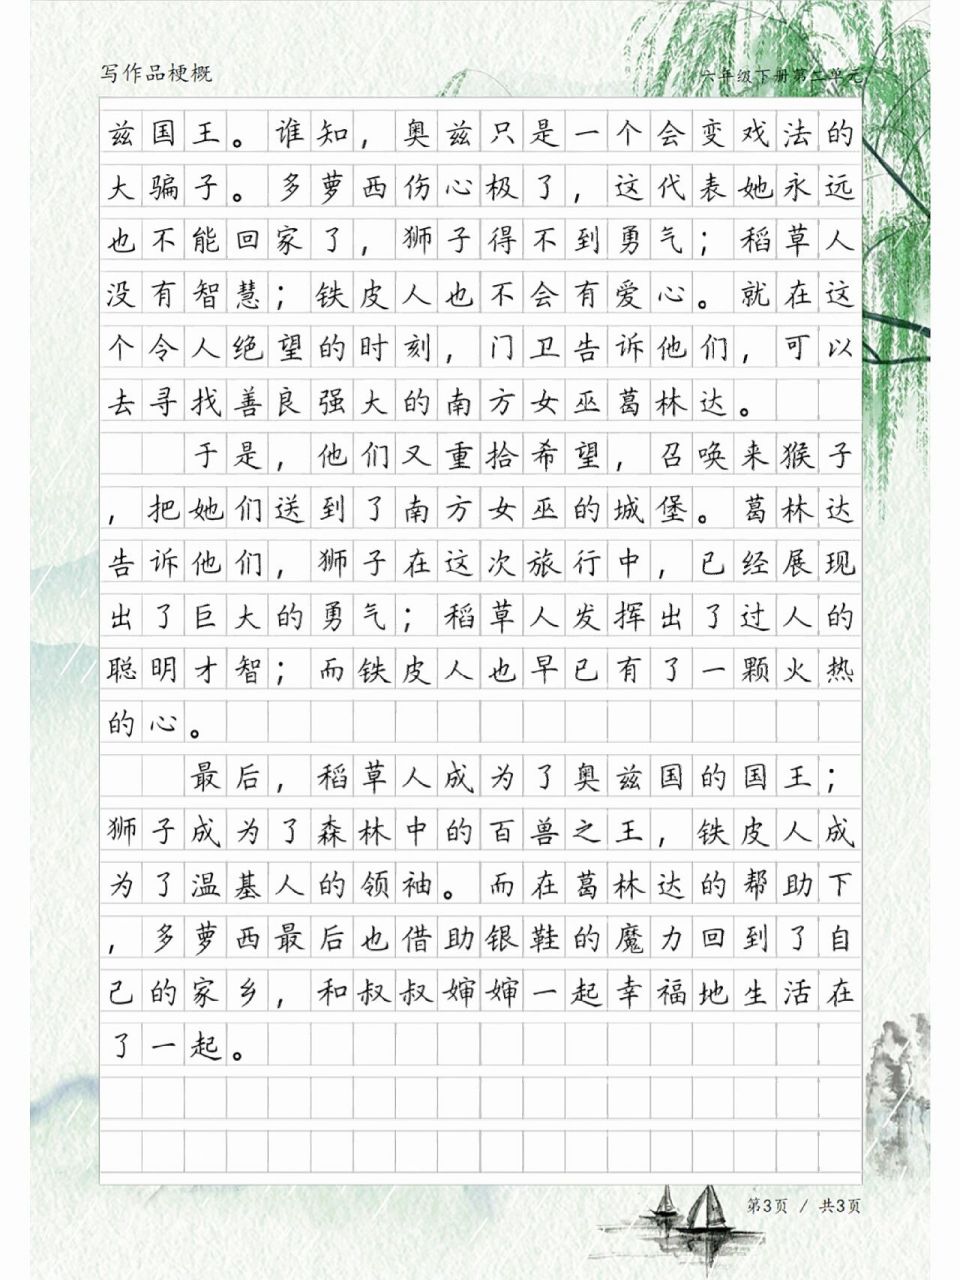 写作品梗概
六年级下册第二单元
兹国王。谁知，奥兹只是一个会变戏法的
大骗子。多萝西伤心极了，这代表她永远
也不能回家了，狮子得不到勇气；稻草人
没有智慧；铁皮人也不会有爱心。就在这
个令人绝望的时刻，门卫告诉他们，可以
去寻找善良强大的南方女巫葛林达。
于是，他们又重拾希望，召唤来猴子
，把她们送到了南方女巫的城堡。葛林达
告诉他们，狮子在这次旅行中，已经展现
出了巨大的勇气；稻草人发挥出了过人的
聪明才智；而铁皮人也早已有了一颗火热
的心。
最后，稻草人成为了奥兹国的国王；
狮子成为了森林中的百兽之王，铁皮人成
为了温基人的领袖。而在葛林达的帮助下
，多萝西最后也借助银鞋的魔力回到了自
己的家乡，和叔叔婶婶一起幸福地生活在
了一起。
第3页 / 共3页